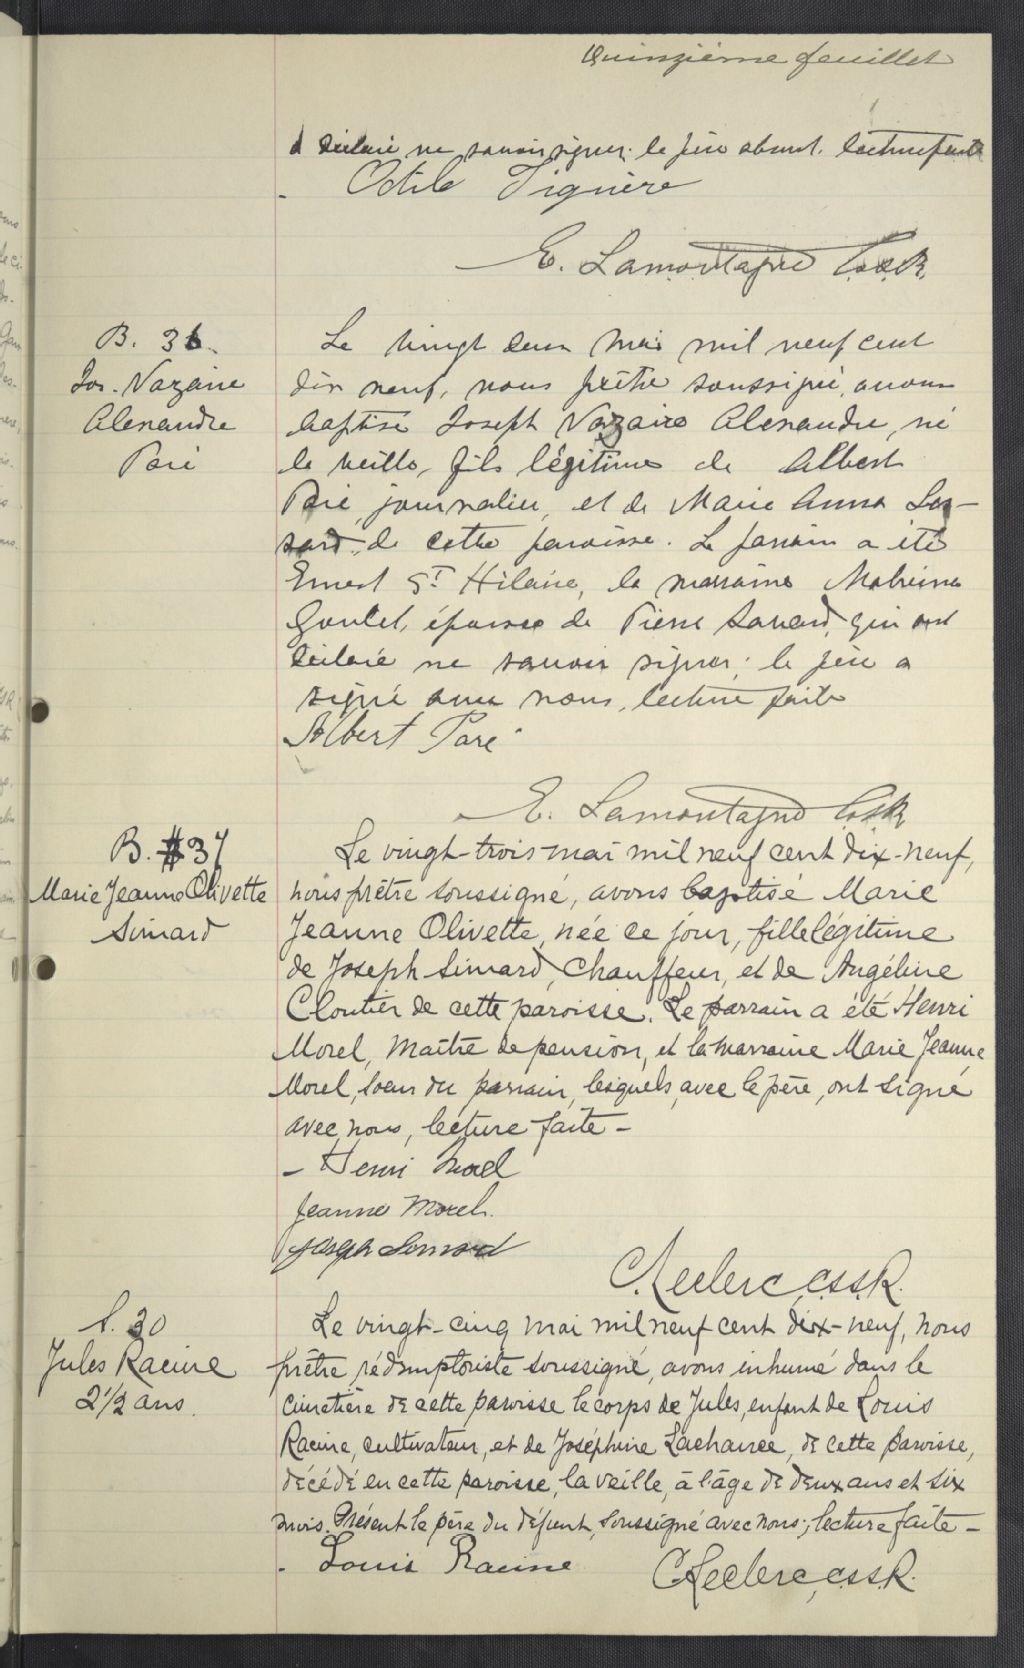 Quinzième feuillet
a déclaré ne savoir signer. le père absent. lecture faite
E. Lamontagne C.ss.R.
B. 36
Jos. Nazaire
Alexandre
Paré
Le vingt deux mai mil neuf cent
dix neuf, nous prêtre soussigné, avons
baptisé Joseph Nazaire Alexandre, né
la veille, fils légitime de Albert
Paré, journalier, et de Marie Anna Les-
sard, de cette paroisse. Le parrain a été
Ernest St Hilaire, la marraine
Goulet, épouse de Pierre Savard, qui ont
déclaré ne savoir signer; le père a
signé avec nous, lecture faite
Albert Paré
E. Lamontagne C.ss.R
B. #37
Marie Jeanne Olivette
Simard
Le vingt-trois mai mil neuf cent dix-neuf,
nous prêtre soussigné, avons baptisé Marie
Jeanne Olivette, née ce jour, fille légitime
de Joseph Simard, Chauffeur, et de Angéline
Cloutier de cette paroisse. Le parrain a été Henri
Morel, Maître de pension, et la marraine Marie Jeanne
Morel, soeur du parrain, lesquels, avec le père, ont signé
avec nous, lecture faite -
- Henri Morel
Jeanne Morel.
Joseph Simard
C. Leclerc, C.SS.R.
S. 30
Jules Racine
2 1/2 ans.
Le vingt-cinq mai mil neuf cent dix-neuf, nous
prêtre rédemptoriste soussigné, avons inhumé dans le
cimetière de cette paroisse le corps de Jules, enfant de Louis
Racine, cultivateur, et de Joséphine Lachance, de cette paroisse,
décédé en cette paroisse, la veille, à l'âge de deux ans et six
mois. Présent le père du défunt, soussigné avec nous; lecture faite -
- Louis Racine
C. Leclerc, C.SS.R.